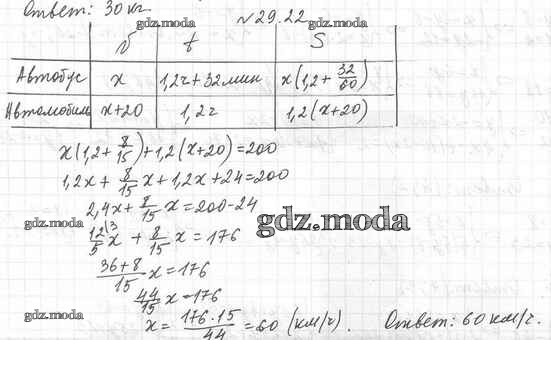 Ответ: 30 кг
gdz.moda
№ 29.22
gdz.moda
v t S
Автобус x 1,2ч + 32 мин x(1,2 + 32/60)
Автомобиль x+20 1,2ч 1,2(x+20)
x(1,2 + 8/15) + 1,2(x+20) = 200
1,2x + 8/15 x + 1,2x + 24 = 200
2,4x + 8/15 x = 200-24
gdz.moda gdz.moda
12\3/5 x + 8/15 x = 176
36+8/15 x = 176
44/15 x = 176
gdz.moda gdz.moda
x = 176·15/44 = 60 (км/ч). Ответ: 60 км/ч.